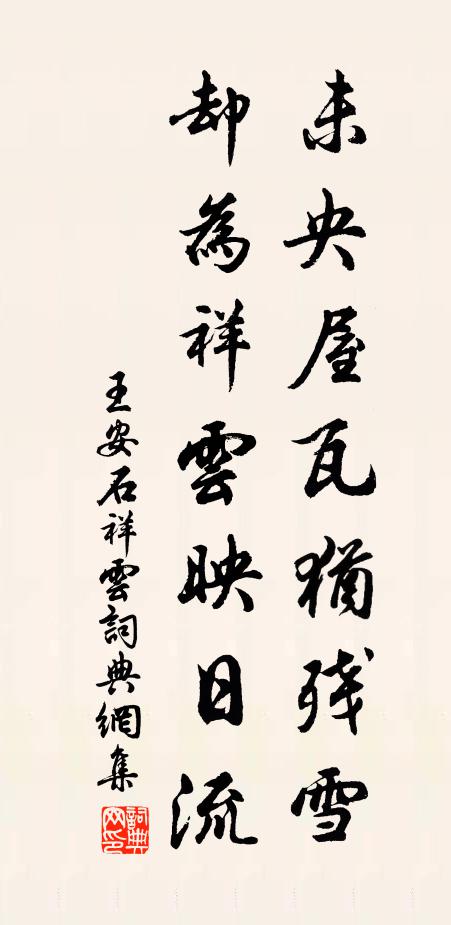 未央屋瓦猶残雪
却為祥雲映日流
王安石祥雲詞典網集
詞典网印